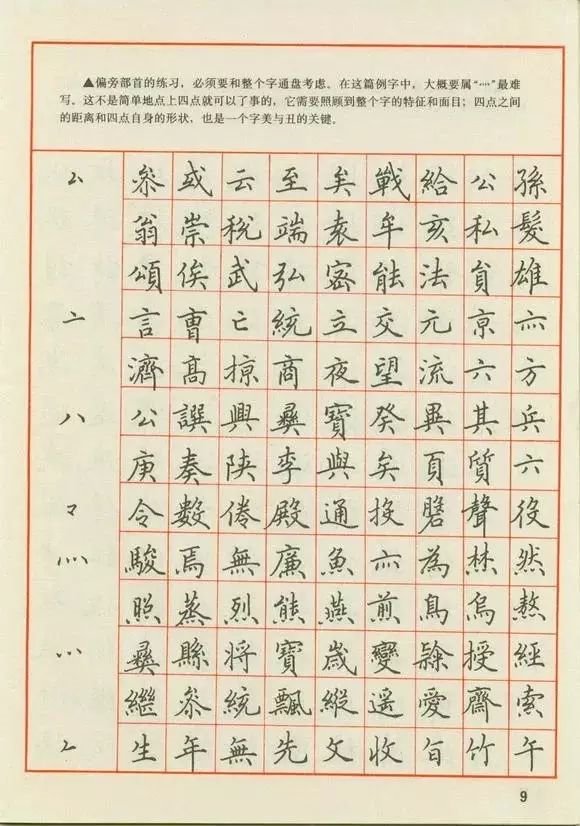 ▲偏旁部首的练习，必须要和整个字通盘考虑。在这篇例字中，大概要属“灬”最难
写。这不是简单地点上四点就可以了事的，它需要照顾到整个字的特征和面目；四点之间
的距离和四点自身的形状，也是一个字美与丑的关键。
厶 參 或 云 至 矣 戰 給 公 孫
翁 崇 稅 端 袁 牟 亥 私 髮
頌 俟 武 弘 密 能 法 員 雄
亠 言 曹 亡 統 立 交 元 京 亦
濟 高 掠 商 夜 望 流 六 方
八 公 譔 興 彝 寶 癸 異 其 兵
庚 奏 陝 李 與 矣 頁 質 六
令 數 倦 殿 通 投 聲 役
灬 駿 焉 無 廉 魚 亦 為 然
照 蒸 烈 熊 燕 煎 鳥 烏 熬
彝 縣 將 寶 歲 變 授 經
繼 參 統 飄 縱 遥 愛 齋 索
生 年 無 先 文 收 旨 竹 午
9